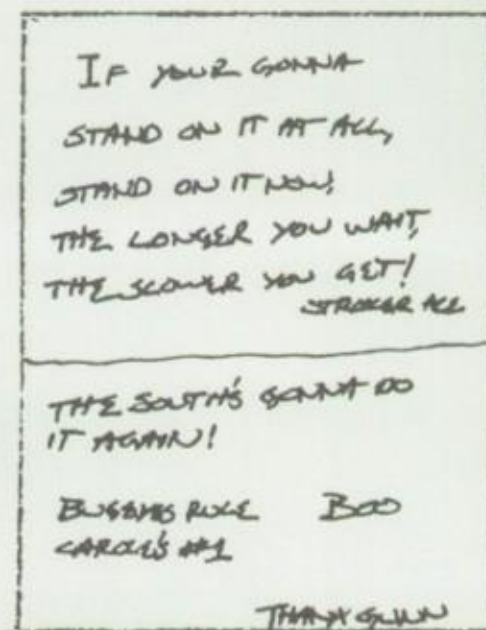 IF YOUR GONNA
STAND ON IT AT ALL,
STAND ON IT NOW!
THE LONGER YOU WAIT,
THE SLOWER YOU GET!
STROKER ACE
THE SOUTH'S GONNA DO
IT AGAIN!
RULE BOO
CAROLE'S #1